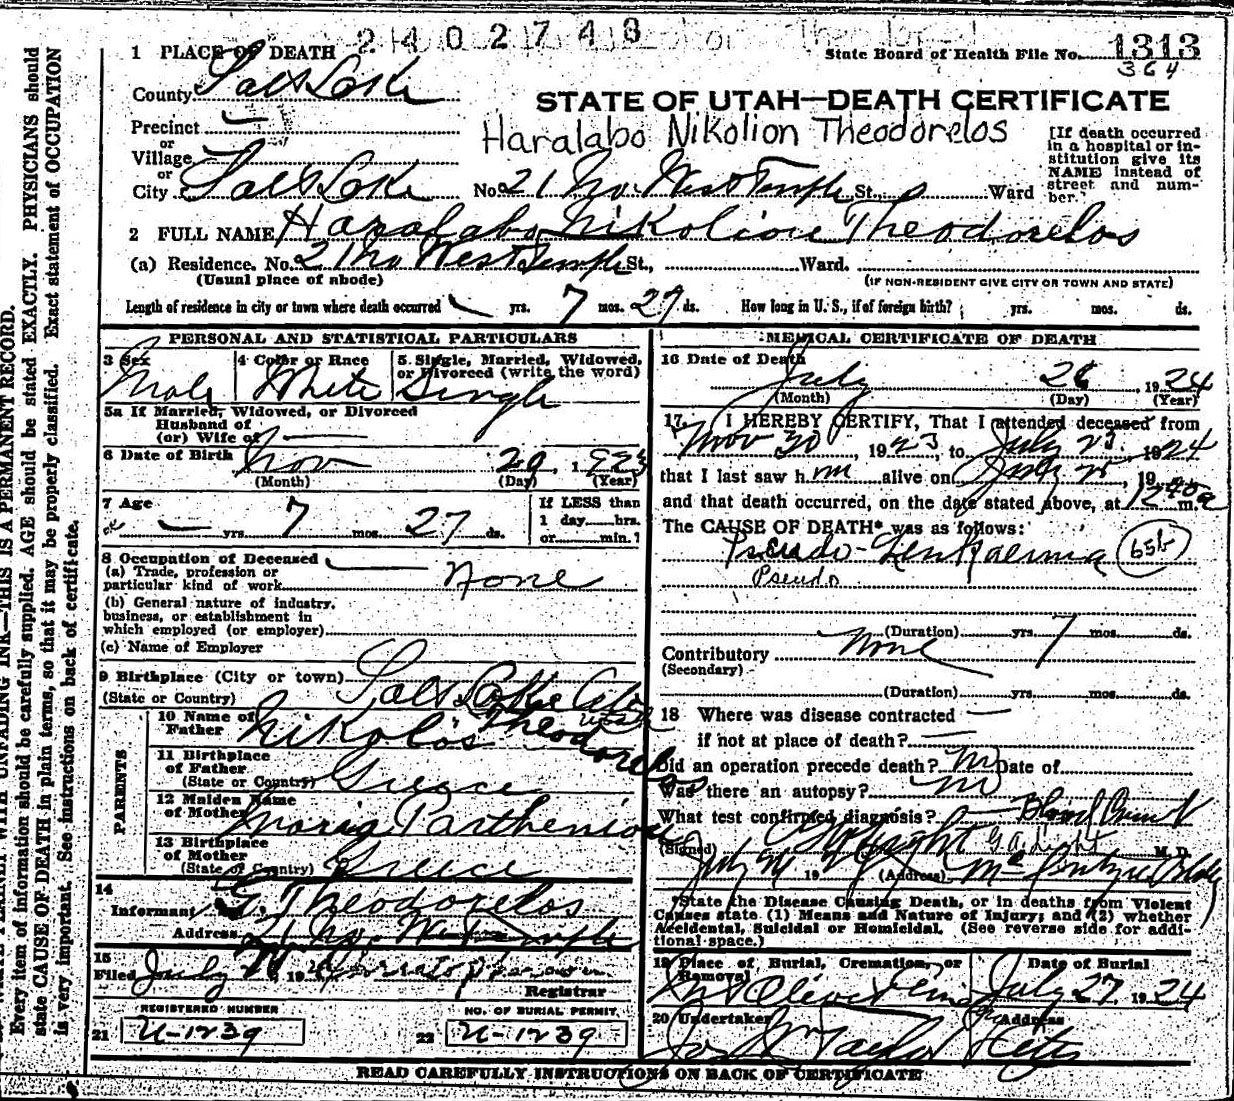 2402743
1 PLACE OF DEATH
State Board of Health File No. 1313
364
County Salt Lake
STATE OF UTAH—DEATH CERTIFICATE
Precinct
or
Village
or
City Salt Lake No. 21 No. West Temple St., Ward
Haralabo Nikolion Theodorelos
[If death occurred
in a hospital or in-
stitution give its
NAME instead of
street and num-
ber.
2 FULL NAME Haralabo Nikolion Theodorelos
(a) Residence. No. 21 No West Temple St., Ward.
(Usual place of abode)
(IF NON-RESIDENT GIVE CITY OR TOWN AND STATE)
Length of residence in city or town where death occurred yrs. 7 mos. 27 ds. How long in U. S., if of foreign birth? yrs. mos. ds.
PERSONAL AND STATISTICAL PARTICULARS
3 Sex 4 Color or Race 5. Single, Married, Widowed,
or Divorced (write the word)
Male White Single
5a If Married, Widowed, or Divorced
Husband of
(or) Wife of
6 Date of Birth Nov 29, 1923
(Month) (Day) (Year)
7 Age
If LESS than
1 day hrs.
or min.?
yrs. 7 mos. 27 ds.
8 Occupation of Deceased
(a) Trade, profession or
particular kind of work None
(b) General nature of industry,
business, or establishment in
which employed (or employer)
(c) Name of Employer
9 Birthplace (City or town) Salt Lake City
(State or Country) Utah
PARENTS
10 Name of
Father Nikolos Theodorelos
11 Birthplace
of Father
(State or Country) Greece
12 Maiden Name
of Mother Maria Partheniou
13 Birthplace
of Mother
(State or Country) Greece
14
Informant G. Theodorelos
Address 21 No. West Temple
15
Filed July 26 19
Registrar
REGISTERED NUMBER
NO. OF BURIAL PERMIT
21 U-1239
22 U-1239
MEDICAL CERTIFICATE OF DEATH
16 Date of Death
July 26, 1924
(Month) (Day) (Year)
17. I HEREBY CERTIFY, That I attended deceased from
Nov 30, 1923, to July 25, 1924
that I last saw him alive on July 25, 19
and that death occurred, on the date stated above, at 12 m.
The CAUSE OF DEATH* was as follows:
Pseudo-Leukaemia 65b
Pseudo
(Duration) yrs. 7 mos. ds.
Contributory None
(Secondary)
(Duration) yrs. mos. ds.
18 Where was disease contracted
if not at place of death?
Did an operation precede death? No Date of
Was there an autopsy? No
What test confirmed diagnosis? Blood Count
(Signed) G.A. Light M. D.
July 26 19 (Address) McIntyre Bldg
*State the Disease Causing Death, or in deaths from Violent
Causes state (1) Means and Nature of Injury; and (2) whether
Accidental, Suicidal or Homicidal. (See reverse side for addi-
tional space.)
19 Place of Burial, Cremation, or
Removal
Date of Burial
Mt Olivet Cem July 27 1924
20 Undertaker Address
Jos Wm Taylor City
READ CAREFULLY INSTRUCTIONS ON BACK OF CERTIFICATE
WRITE PLAINLY WITH UNFADING INK—THIS IS A PERMANENT RECORD.
Every item of information should be carefully supplied. AGE should be stated EXACTLY. PHYSICIANS should
state CAUSE OF DEATH in plain terms, so that it may be properly classified. Exact statement of OCCUPATION
is very important. See instructions on back of certificate.